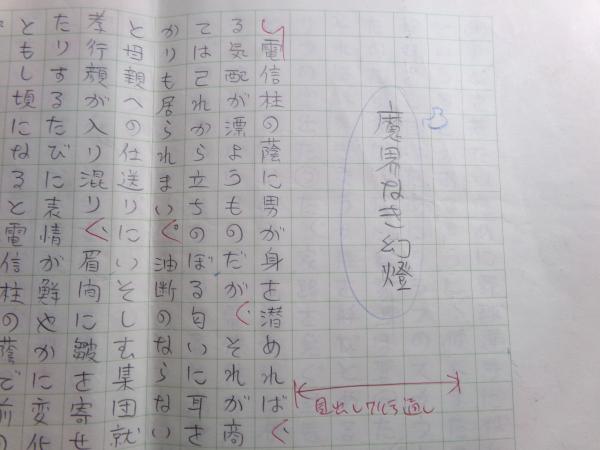 魔界なき幻燈
見出し7行通し
電信柱の蔭に男が身を潜めれば
る気配が漂ようものだがそれが高
ては己れから立ちのぼる匂いに耳を
かりも居られまい油断のならない
と母親への仕送りにいそしむ集団就
孝行顔が入り混り眉間に皺を寄せ
たりするたびに表情が鮮やかに変化
ともし頃になると電信柱の蔭で前